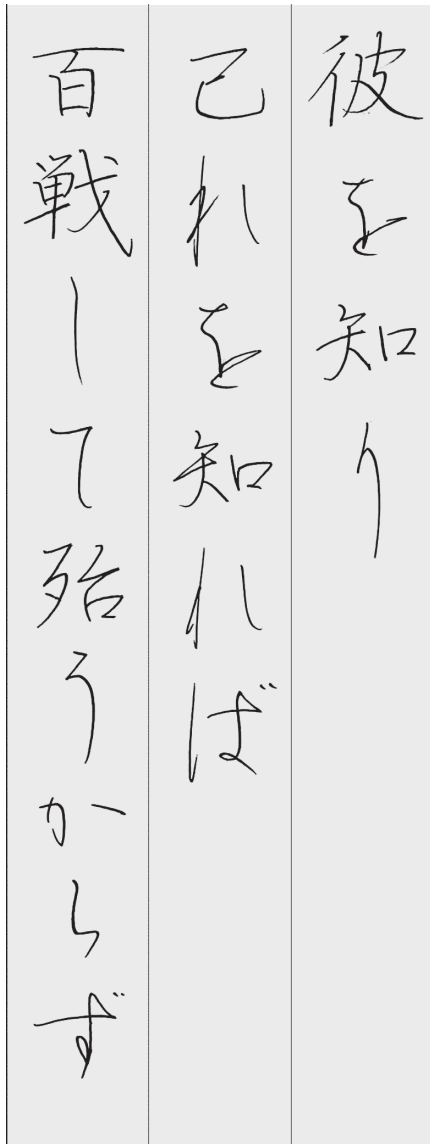 彼を知り
己れを知れば
百戦して殆うからず